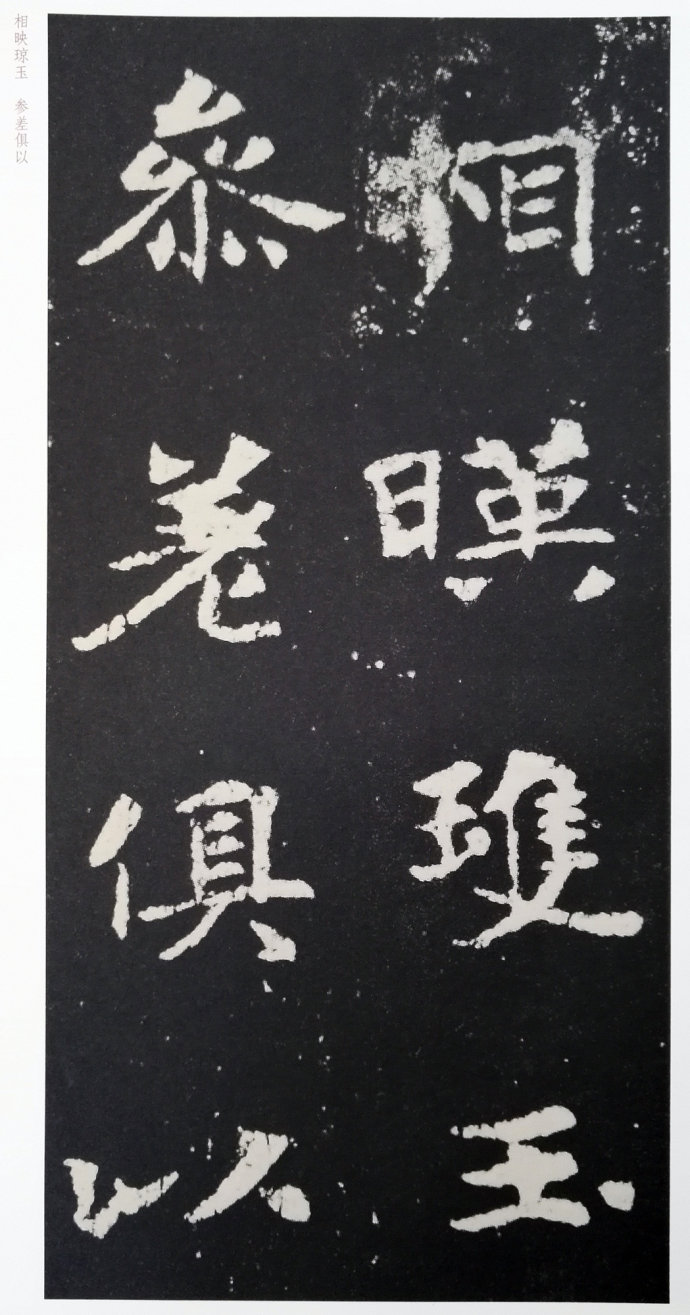 相暎瓊玉
叅差俱以
相映琼玉 参差俱以